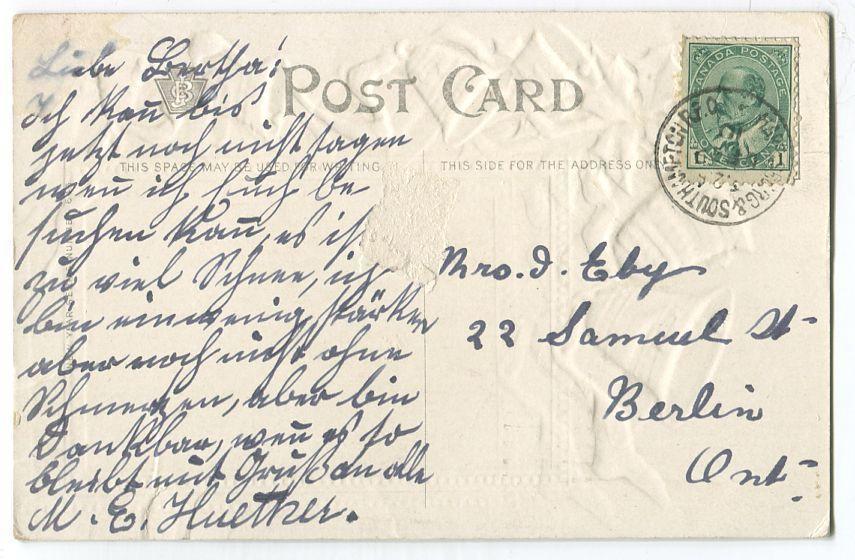 Liebe Bertha!
Ich kan̄ bis
jetzt noch nicht sagen
wen̄ ich Euch be
suchen kan̄, es ist
zu viel Schnee, ich
bin ein wenig stärker
aber noch nicht ohne
Schmerzen, aber bin
Dankbar, wen̄ es so
bleibt mit Gruß an alle
M. E. Huether.
POST CARD
THIS SPACE MAY BE USED FOR WRITING
THIS SIDE FOR THE ADDRESS ONLY
CANADA POSTAGE
1 ONE CENT 1
& SOUTHAMPTON R.P.O.
Mrs. I. Eby
22 Samuel St
Berlin
Ont